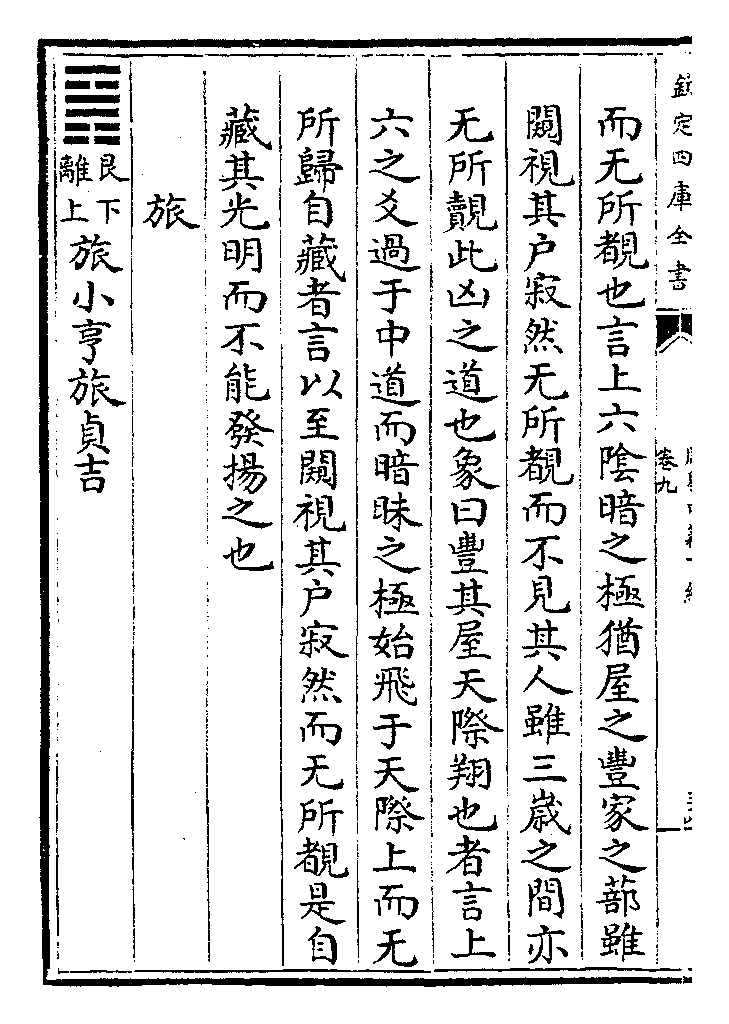 欽定四庫全書
卷九
而无所覩也言上六陰暗之極猶屋之豐家之蔀雖
闚視其户寂然无所覩而不見其人雖三歳之間亦
无所覿此凶之道也象曰豐其屋天際翔也者言上
六之爻過于中道而暗昧之極始飛于天際上而无
所歸自藏者言以至闚視其户寂然而无所覩是自
藏其光明而不能發揚之也
旅
艮下
離上
旅小亨旅貞吉